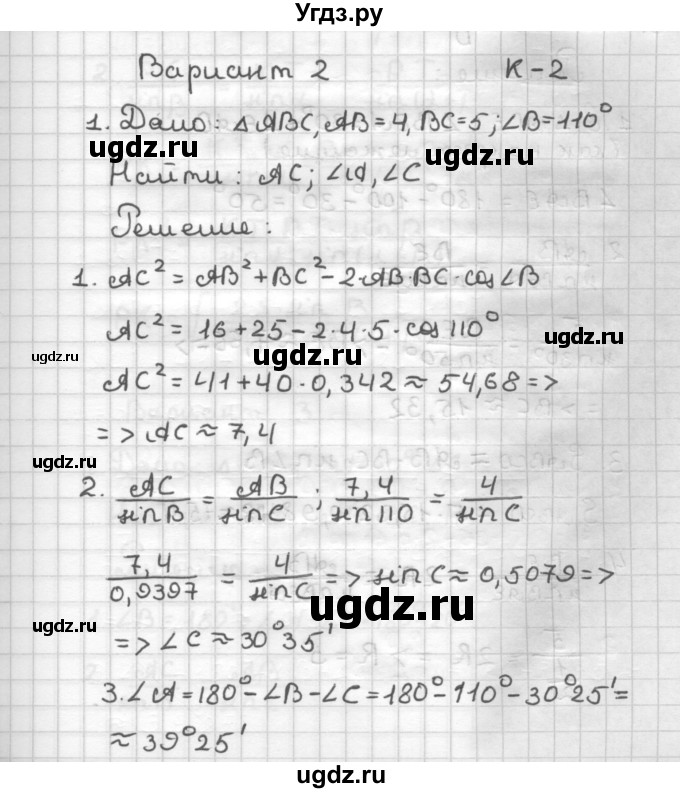 Угдз.ру
Вариант 2 К-2
1. Дано: △ABC, AB=4, BC=5; ∠B=110°
ugdz.ru
Найти: AC; ∠A, ∠C
ugdz.ru
Решение:
1. AC² = AB² + BC² - 2·AB·BC·cos∠B
AC² = 16+25-2·4·5·cos110°
ugdz.ru
ugdz.ru
ugdz.ru
AC² = 41+40·0,342 ≈ 54,68 =>
=> AC ≈ 7,4
ugdz.ru
2. AC/sinB = AB/sinC ; 7,4/sin110 = 4/sinC
ugdz.ru
7,4/0,9397 = 4/sinC => sinC ≈ 0,5079 =>
ugdz.ru
ugdz.ru
=> ∠C ≈ 30°35'
3. ∠A = 180° - ∠B - ∠C = 180° - 110° - 30°25' =
≈ 39°25'
ugdz.ru
ugdz.ru